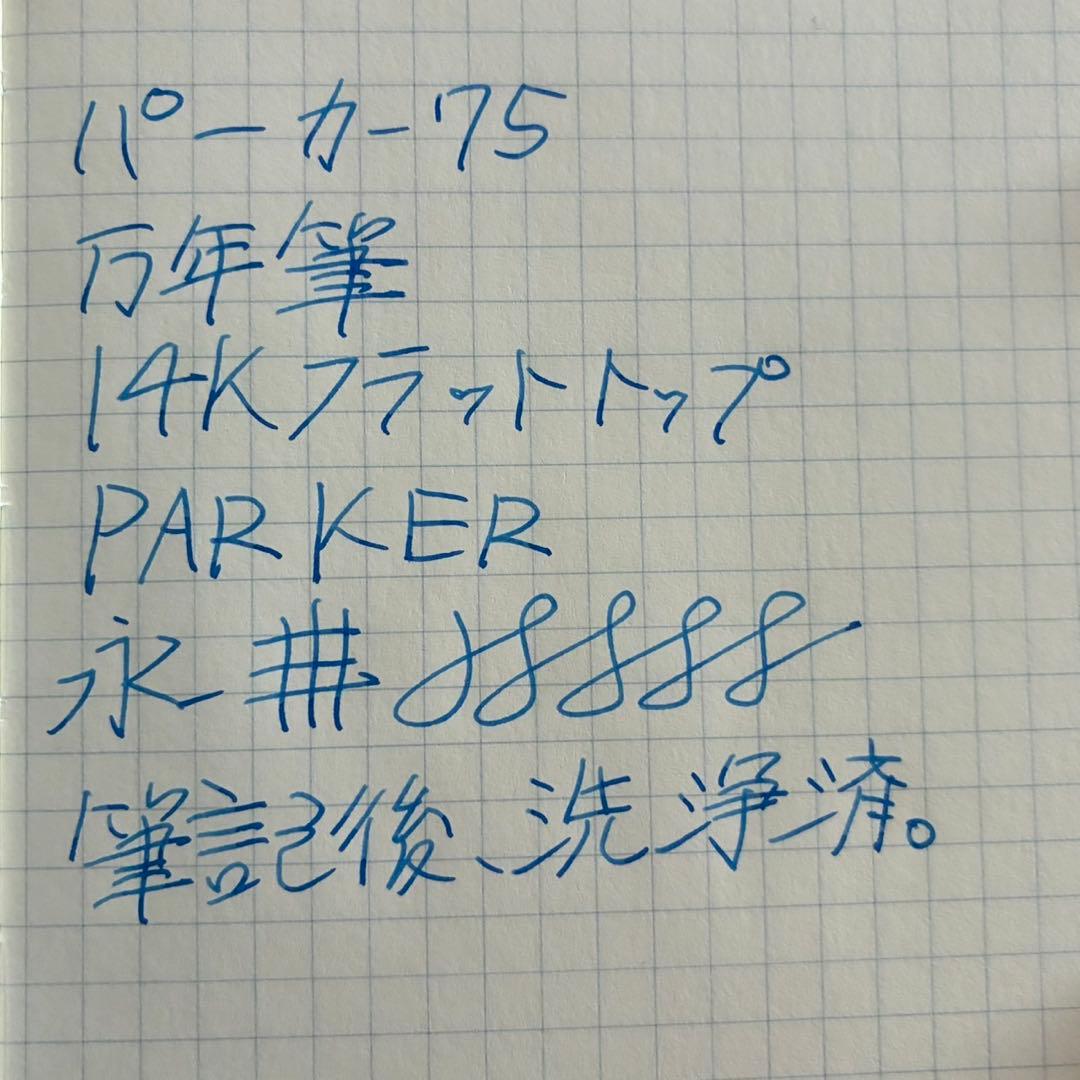 パーカー75
万年筆
14Kフラットトップ
PARKER
永
筆記後、洗浄済。